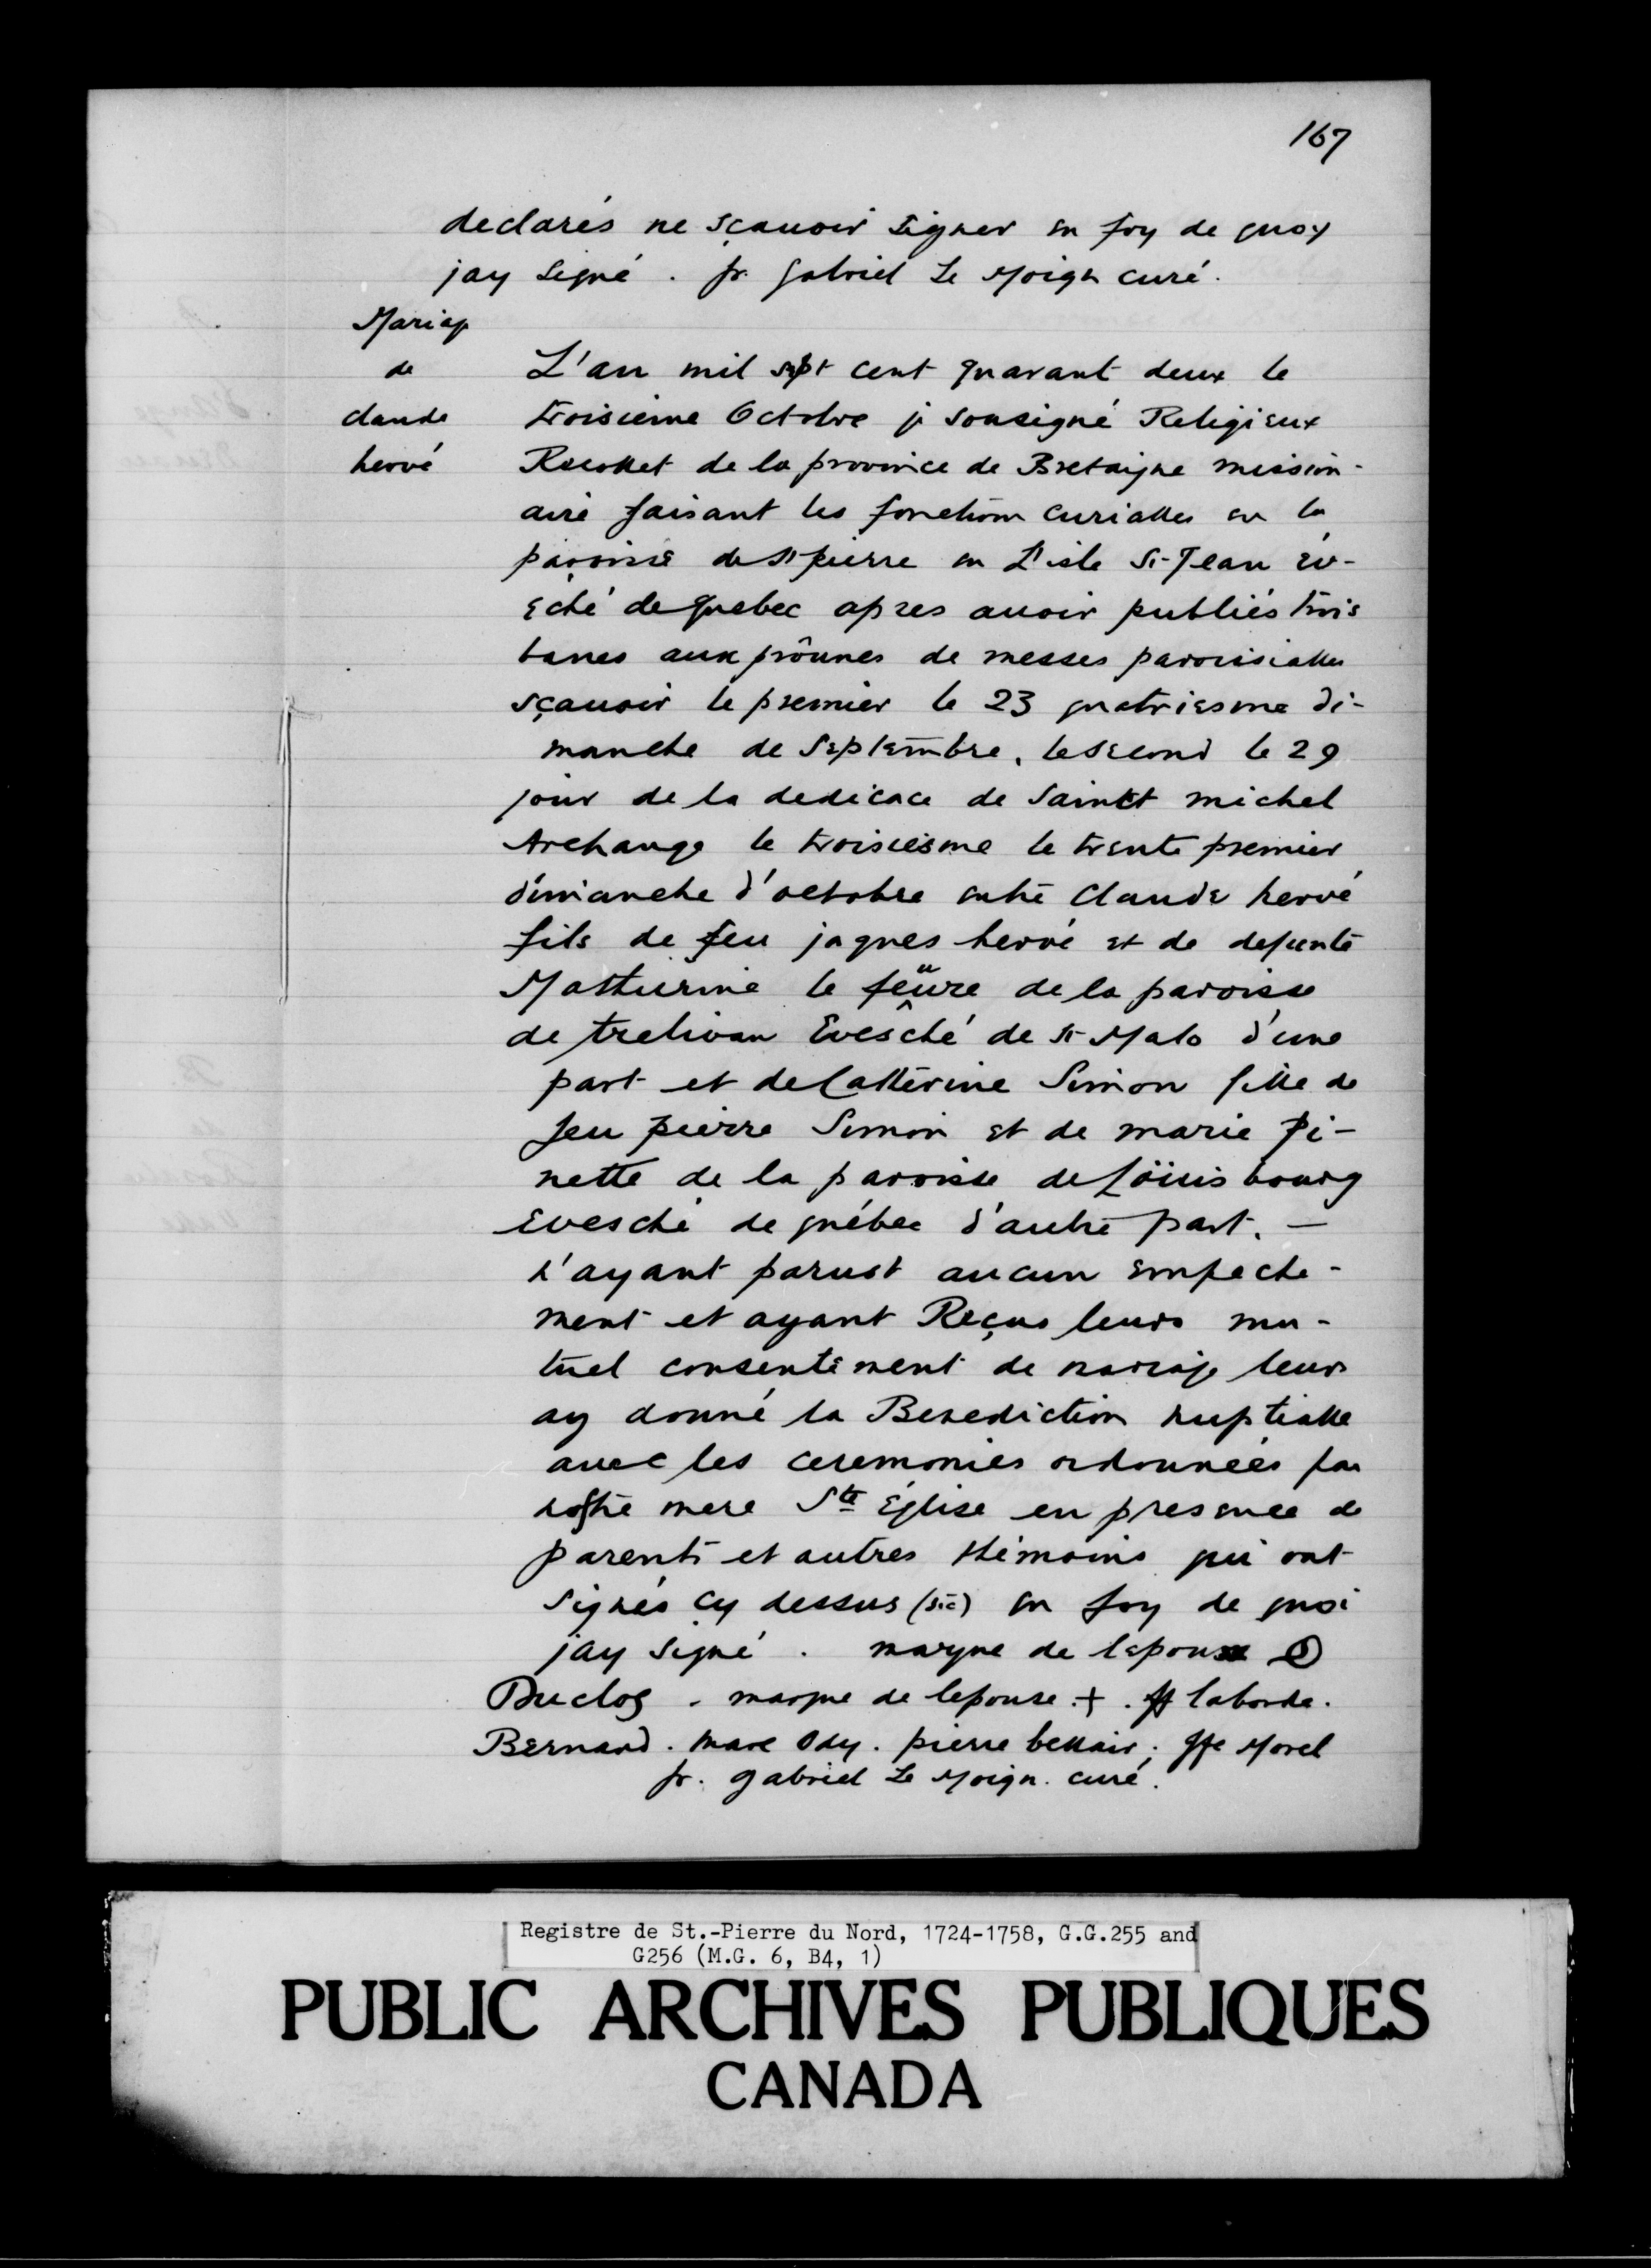 167
declarés ne sçauoir signer en foy de quoy
jay signé . fr. gabriel Le Moign curé.
Mariage
de
claude
hervé
L'an mil sept cent quarant deux le
troisieme Octobre je sousigné Religieux
Recollet de la province de Bretaigne mission-
aire faisant les fonction curialles en la
paroisse de St pierre en L'isle St-Jean ev-
eché de quebec apres auoir publiés trois
banes aux prônnes de messes paroissialles
sçauoir le premier le 23 quatriesme di-
manche de Septembre, le second le 29
jour de la dedicace de Sainct michel
Archange le troisiesme le trente premier
dimanche d'octobre entre Claude hervé
fils de feu jaques hervé et de defunte
Matturine le feüure de la paroisse
de trelivan Evesché de St Malo d'une
part et de Catterine Simon fille de
feu pierre Simon et de marie pi-
nette de la paroisse de Loüisbourg
Evesché de québec d'autre part. —
n'ayant parust aucun empeche-
ment et ayant Reçus leurs mu-
tuel consentement de mariage leurs
ay donné la Benediction nuptialle
avec les ceremonies ordonnées par
nostre mere Ste Eglise en presence de
parents et autres ttémoins qui ont
signés cy dessus (sic) en foy de quoi
jay signé . marque de lepouse
Duclos . marque de lepouse + . laborde.
Bernard . marc Ody . pierre bellair . Morel
fr. gabriel Le Moign. curé.
Registre de St.-Pierre du Nord, 1724-1758, G.G.255 and
G256 (M.G. 6, B4, 1)
PUBLIC ARCHIVES PUBLIQUES
CANADA